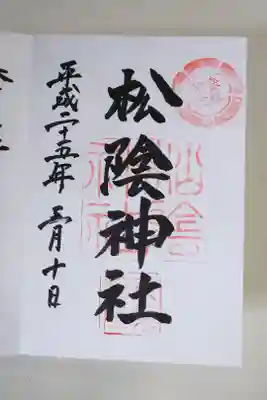 松陰神社
平成二十五年 三月十日